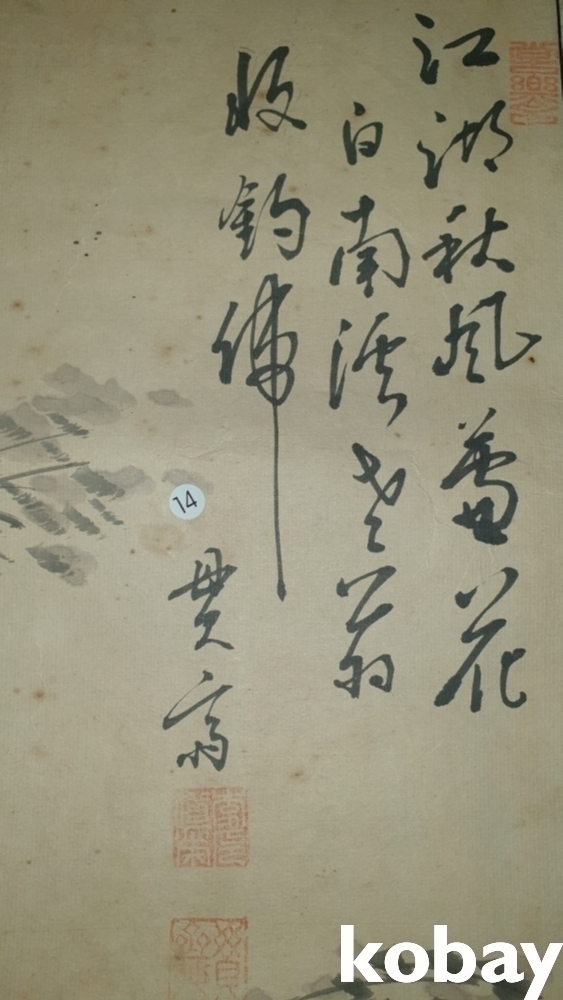 江湖秋風蘆花
白南溪老翁
收釣歸
貫齋
14
kobay